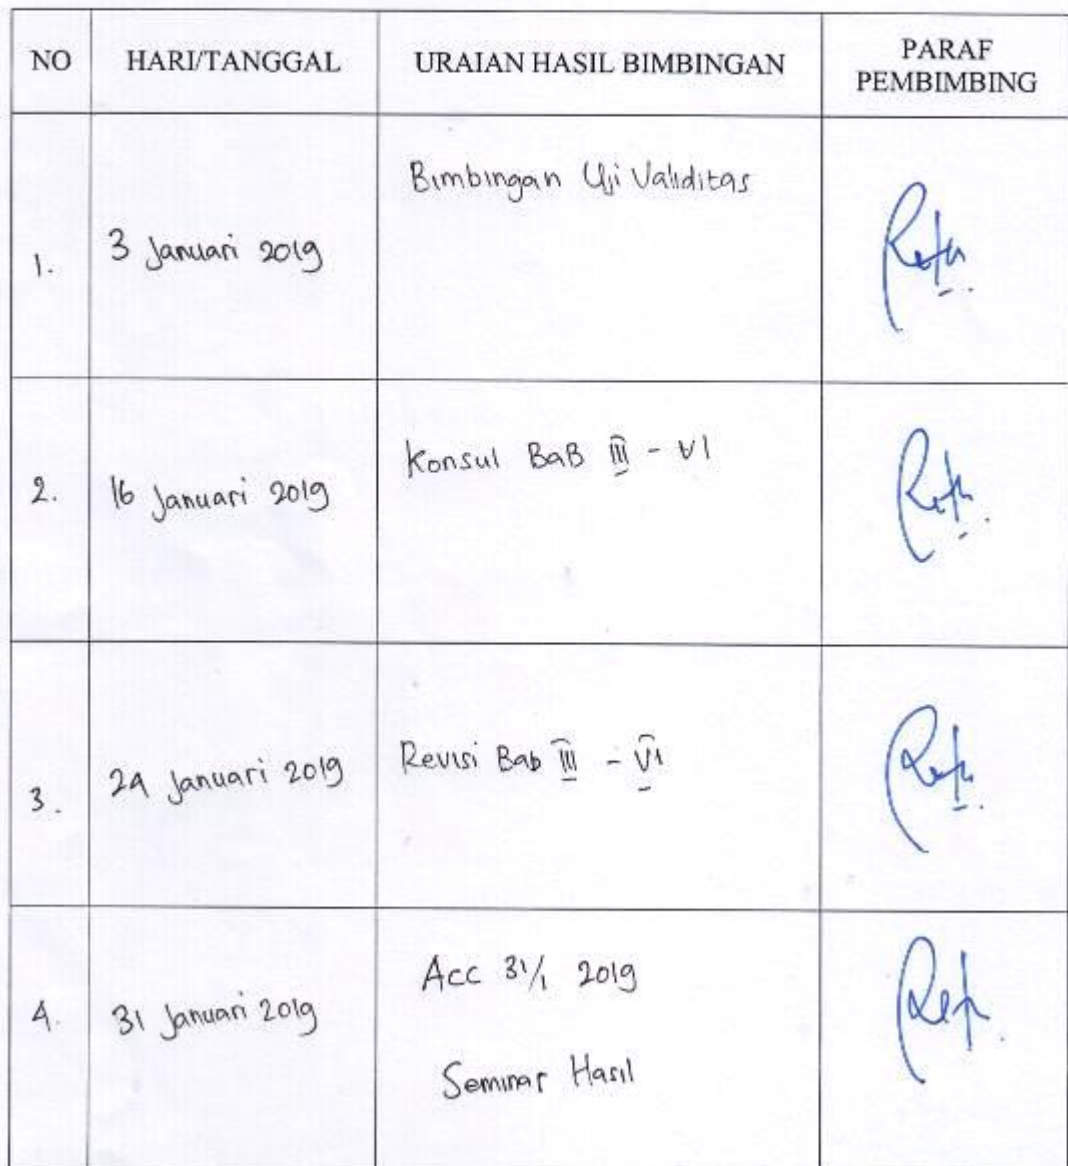 NO HARI/TANGGAL URAIAN HASIL BIMBINGAN PARAF PEMBIMBING
1. 3 Januari 2019 Bimbingan Uji Validitas
2. 16 Januari 2019 Konsul BaB III - VI
3. 24 Januari 2019 Revisi Bab III - VI
4. 31 Januari 2019 Acc 31/1 2019
Seminar Hasil